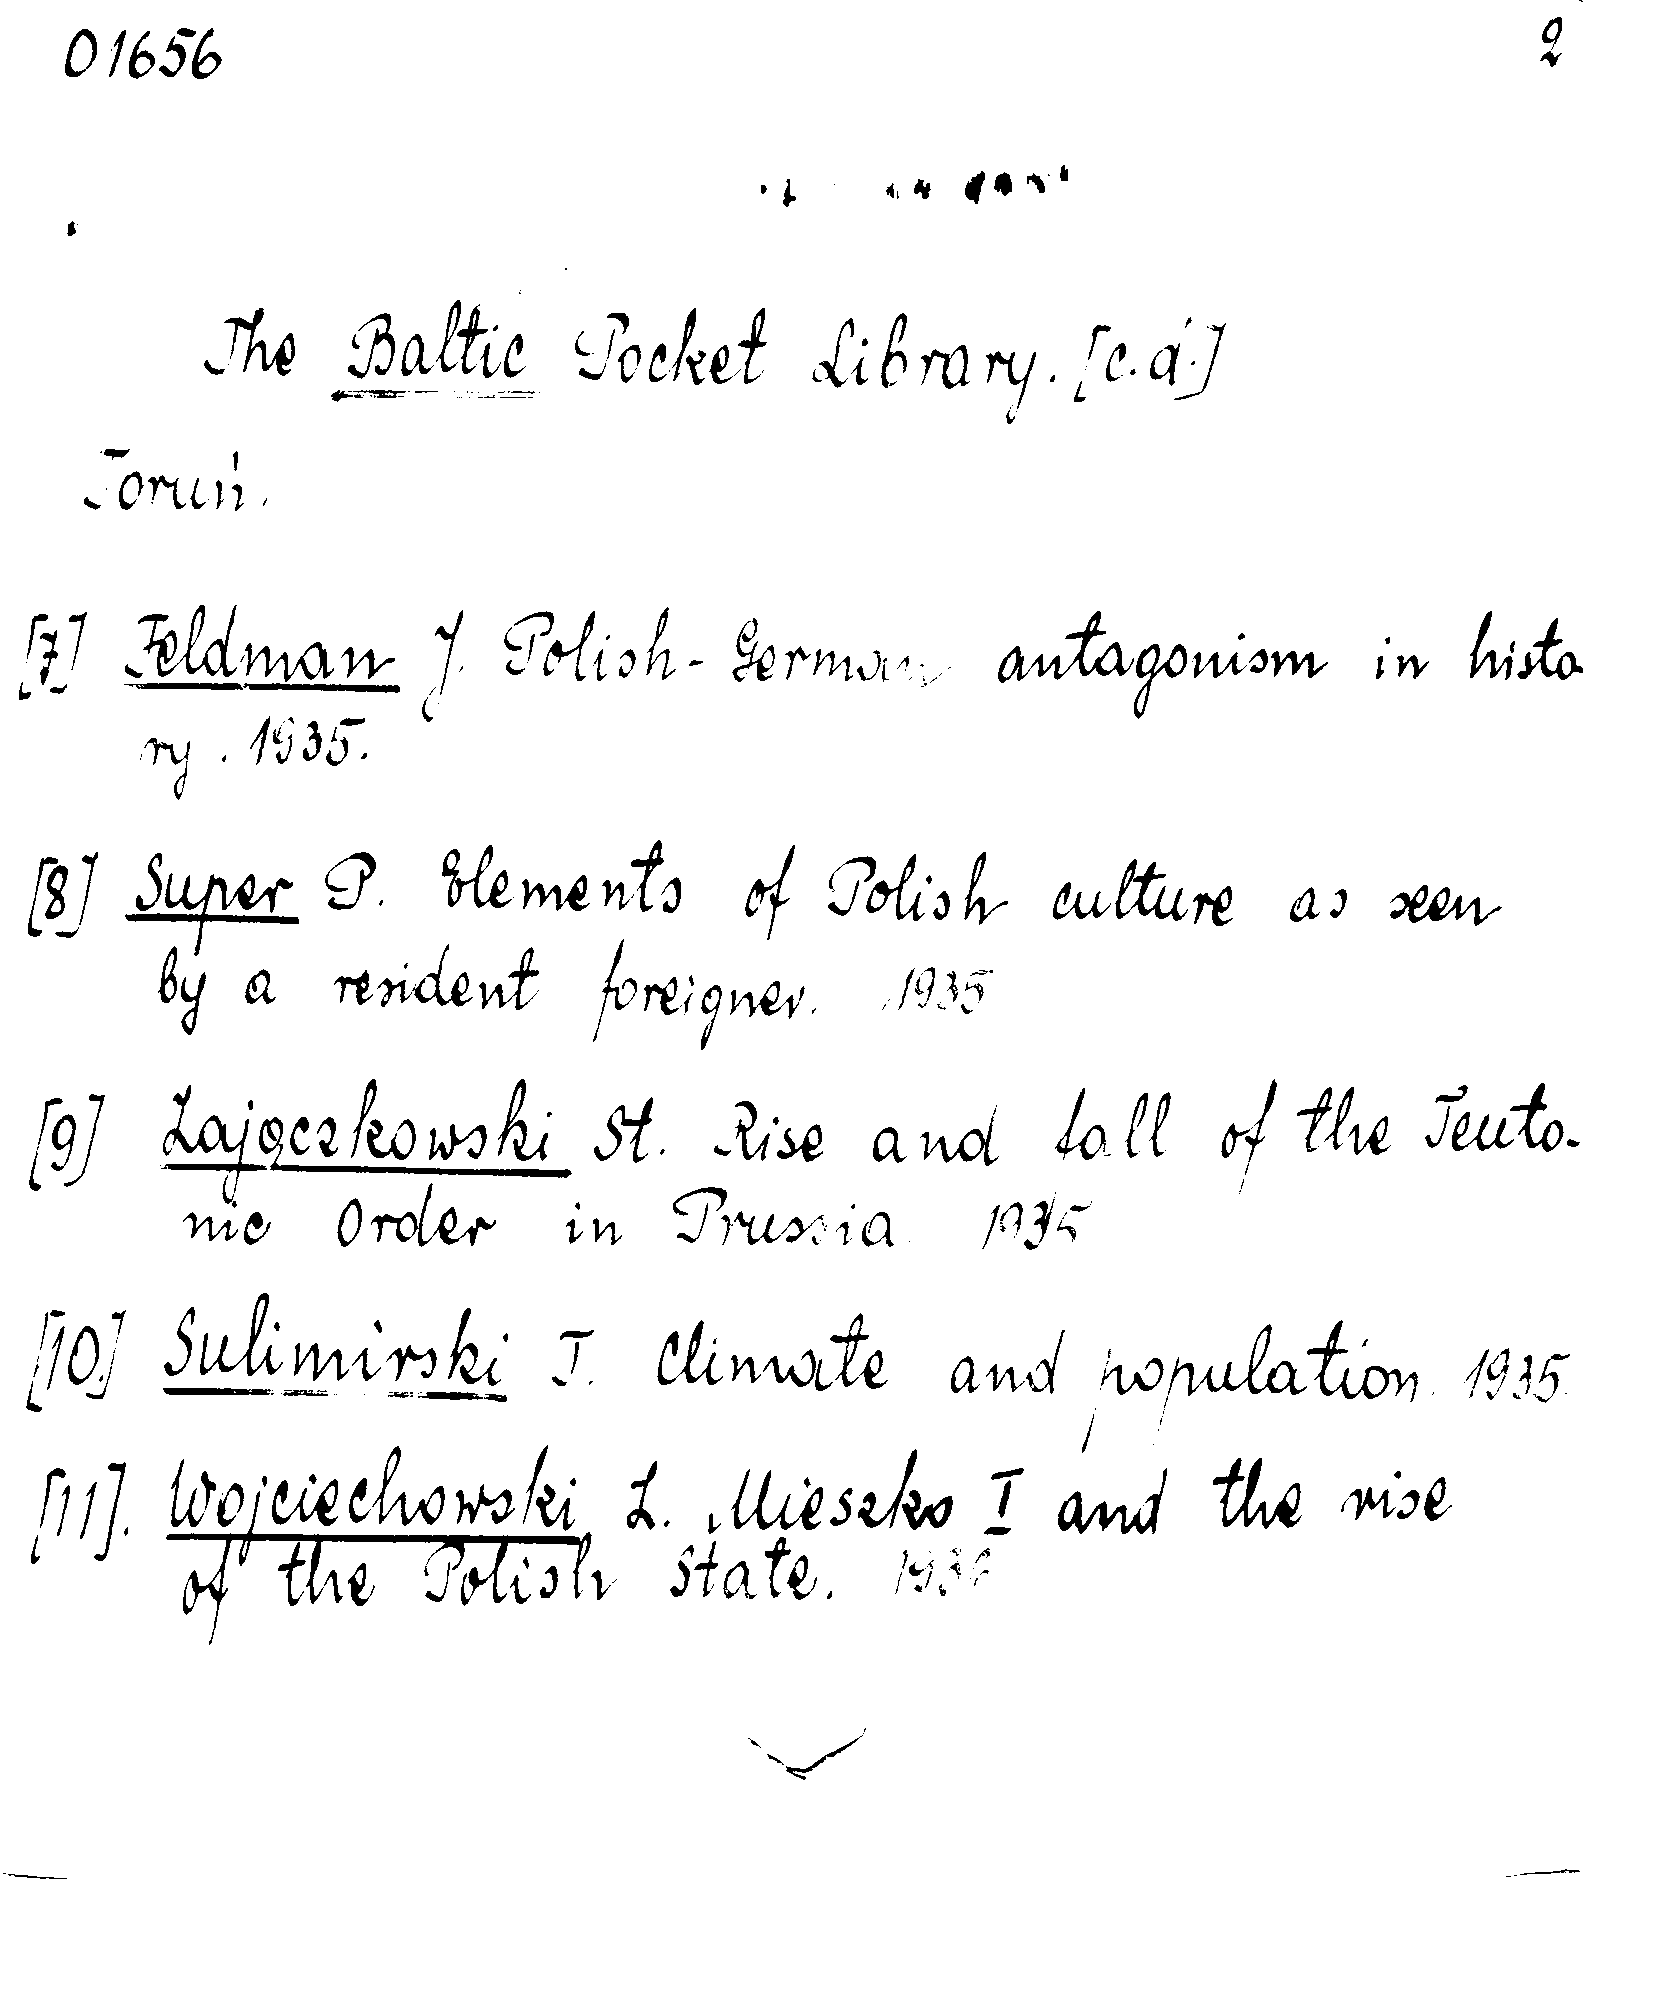 01656 2
The Baltic Pocket Library. [c.d.]
Toruń.
[7] Feldman J. Polish-German antagonism in histo
ry. 1935.
[8] Super P. Elements of Polish culture as seen
by a resident foreigner. 1935
[9] Zajączkowski St. Rise and fall of the Teuto-
nic Order in Prussia 1935
[10] Sulimirski T. Climate and population. 1935.
[11]. Wojciechowski Z. Mieszko I and the rise
of the Polish State. 1936